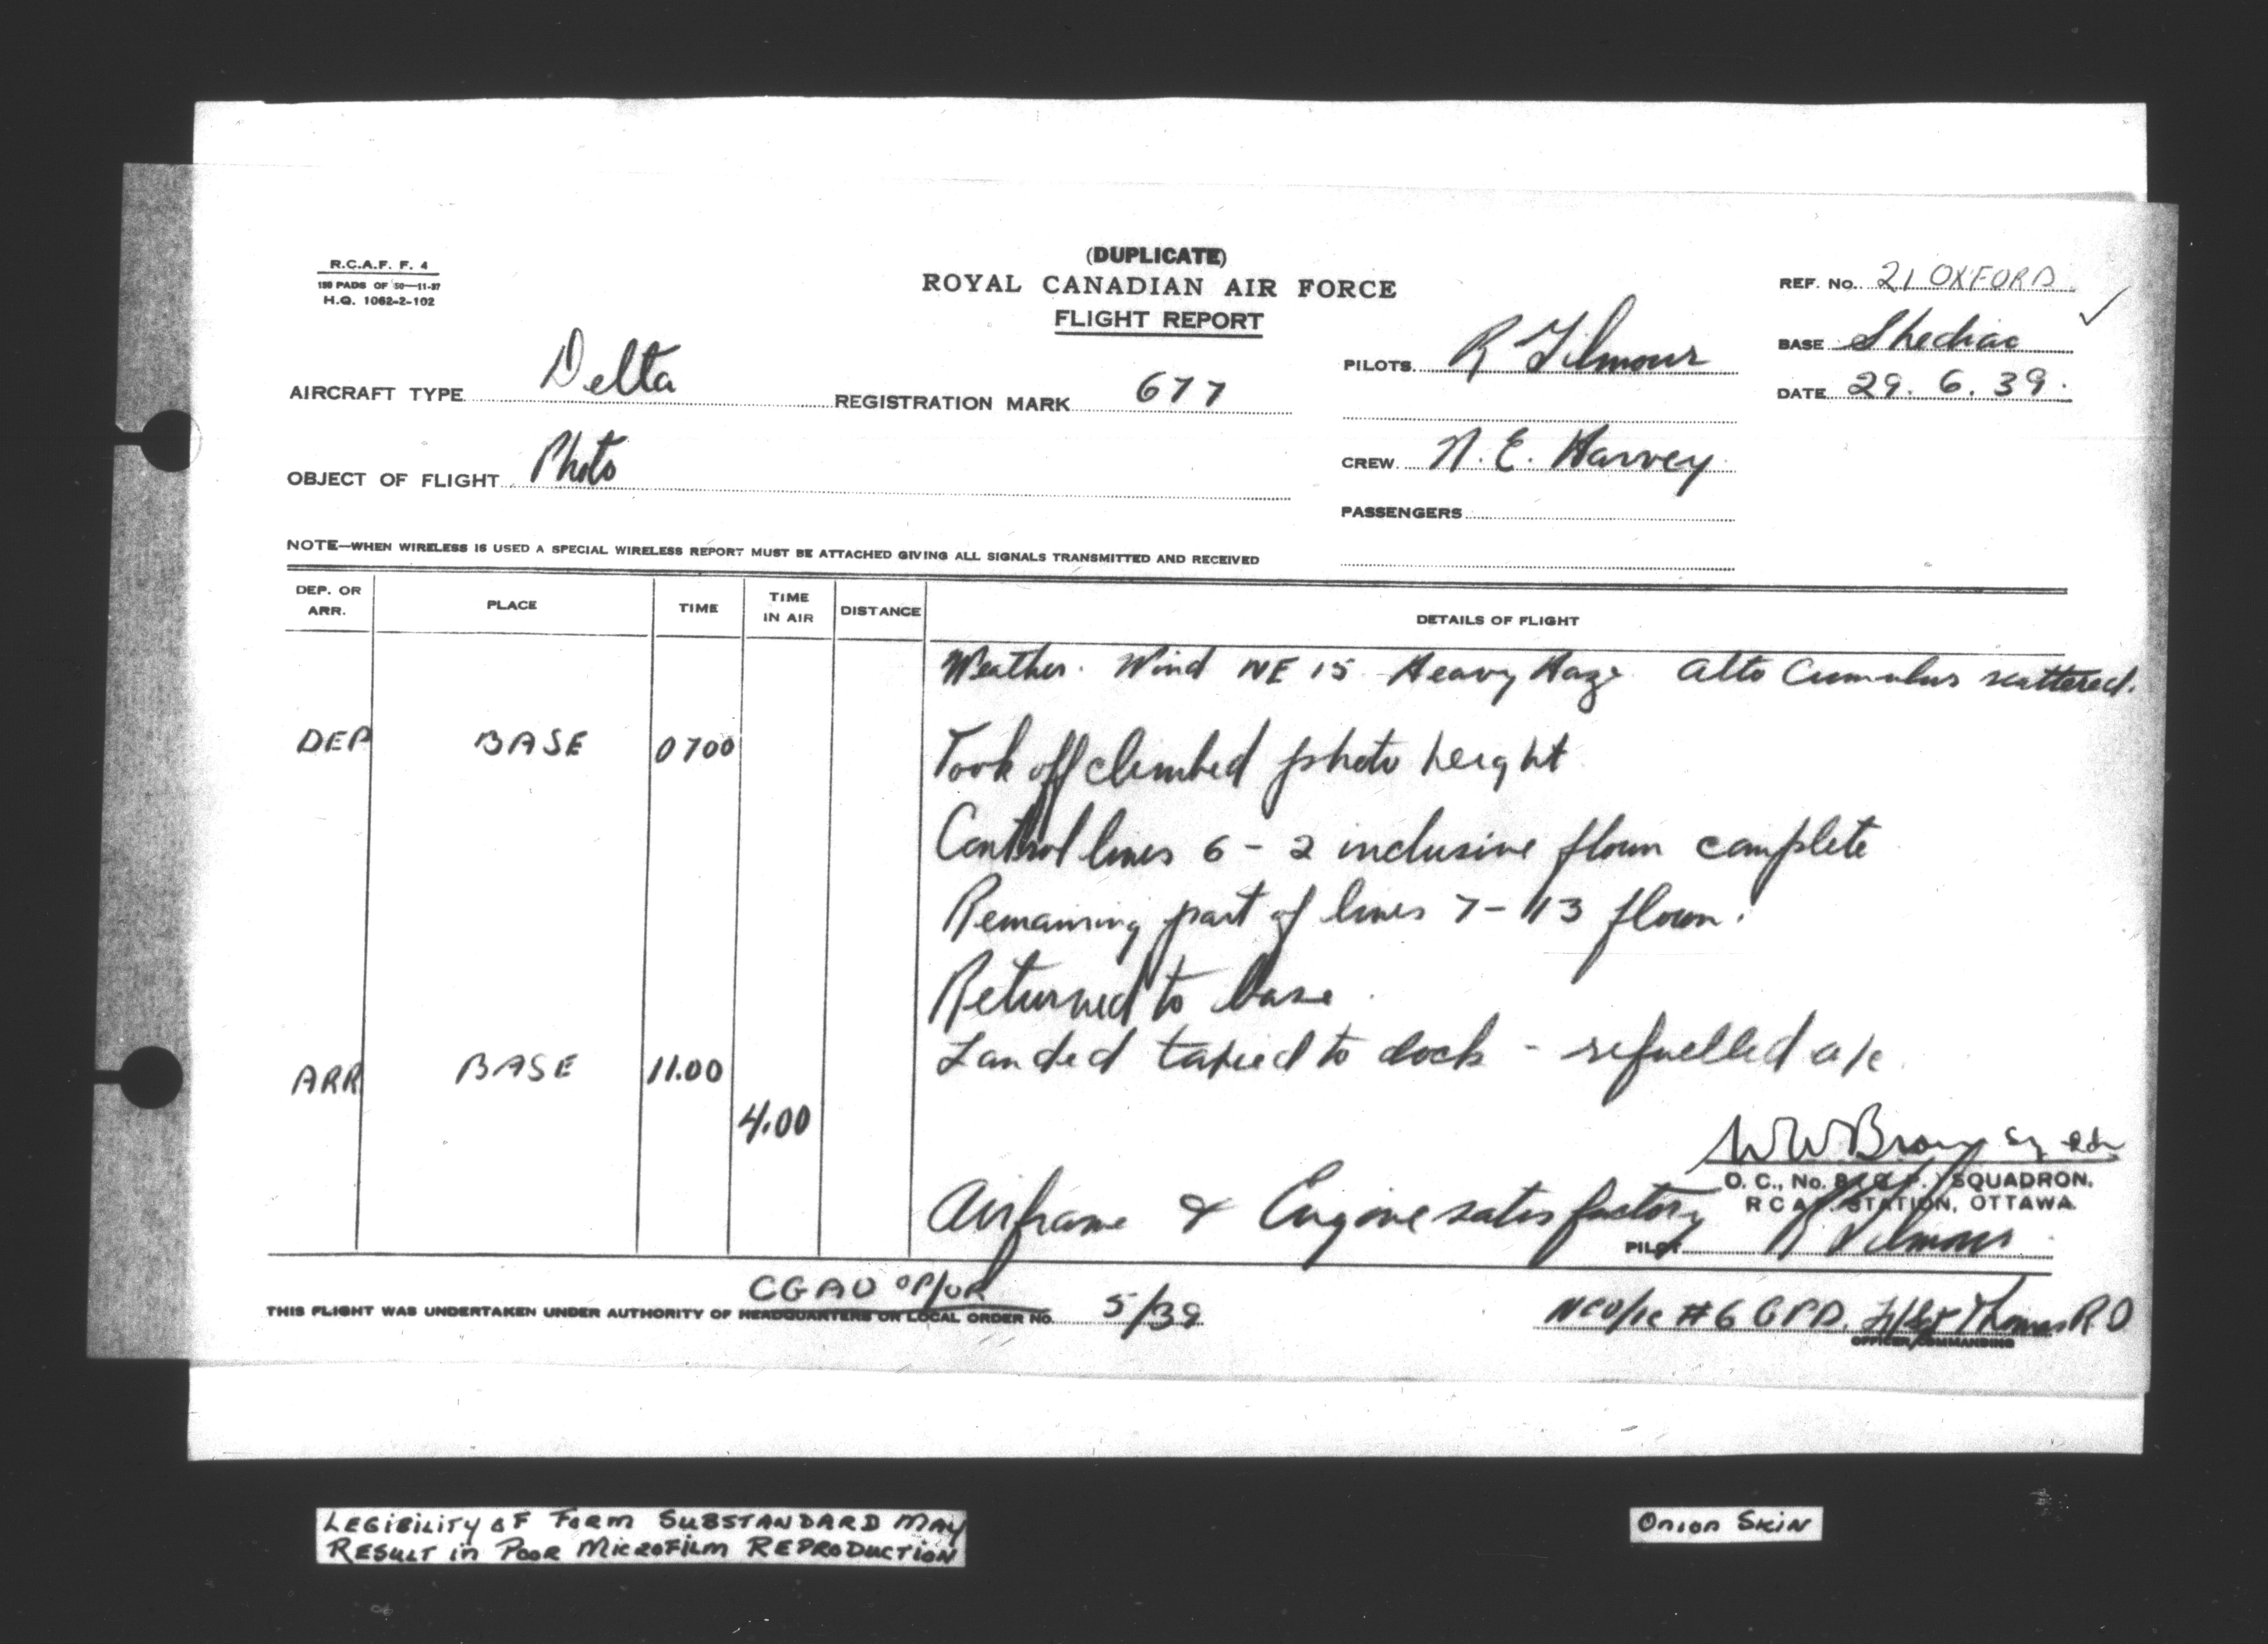 (DUPLICATE)
ROYAL CANADIAN AIR FORCE
FLIGHT REPORT
R.C.A.F. F. 4
150 PADS OF 50—11-37
H.Q. 1062-2-102
REF. No. 21 OXFORD
BASE Shediac
DATE 29. 6. 39.
PILOTS R Gilmour
CREW N. E. Harvey
PASSENGERS
AIRCRAFT TYPE Delta REGISTRATION MARK 677
OBJECT OF FLIGHT Photo
NOTE—WHEN WIRELESS IS USED A SPECIAL WIRELESS REPORT MUST BE ATTACHED GIVING ALL SIGNALS TRANSMITTED AND RECEIVED
DEP. OR ARR. PLACE TIME TIME IN AIR DISTANCE DETAILS OF FLIGHT
Weather. Wind NE 15 Heavy Haze Alto Cumulus scattered.
DEP BASE 0700 Took off climbed photo height
Control lines 6 - 2 inclusive flown complete
Remaining part of lines 7 - 13 flown.
Returned to base.
ARR BASE 11.00 Landed taxied to dock - refuelled a/c
4.00
W W Brown
O. C., No. SQUADRON,
R C A F STATION, OTTAWA.
Airframe & Engine satisfactory
PILOT R Gilmour
CGAO OP/OR
THIS FLIGHT WAS UNDERTAKEN UNDER AUTHORITY OF HEADQUARTERS OR LOCAL ORDER No. 5/39
NCO/ic #6 GPD. F/Sgt Thomas R D
OFFICER COMMANDING
LEGIBILITY OF FORM SUBSTANDARD MAY
RESULT in POOR MICROFILM REPRODUCTION
ONION SKIN